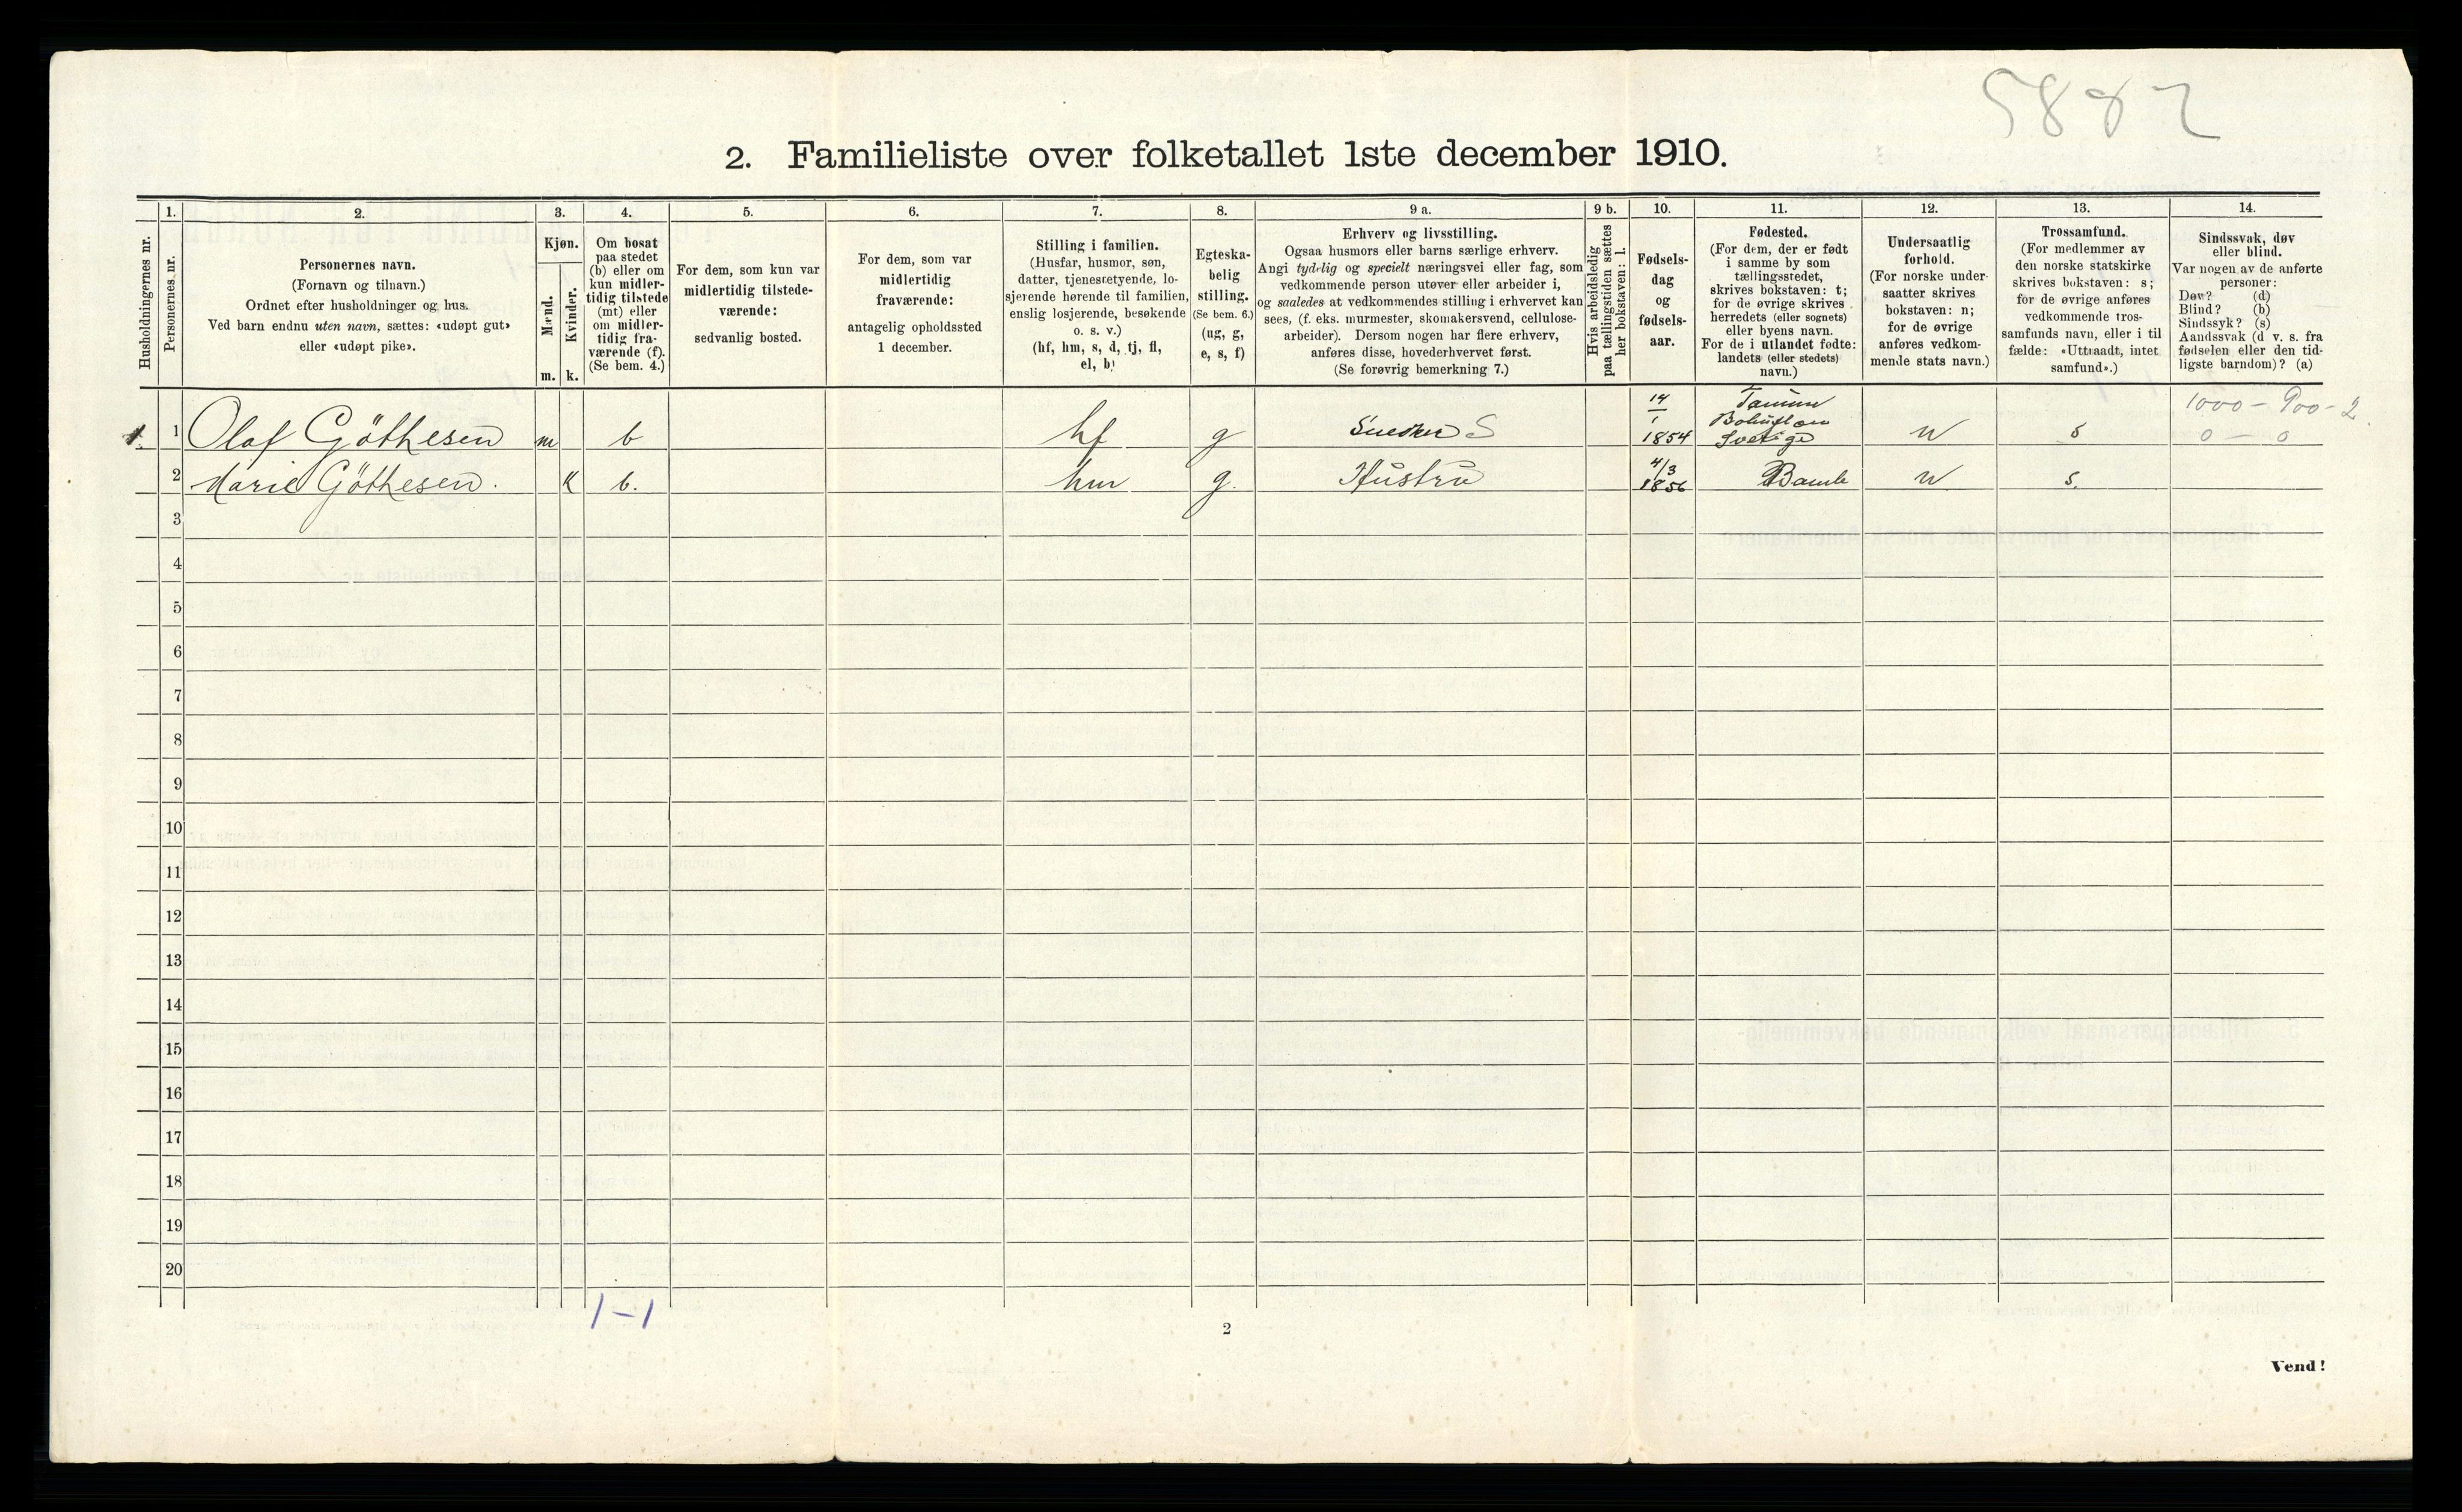 5882
2. Familieliste over folketallet 1ste december 1910.
Husholdningernes nr.
1.
Personernes nr.
2.
Personernes navn.
(Fornavn og tilnavn.)
Ordnet efter husholdninger og hus.
Ved barn endnu uten navn, sættes: «udøpt gut»
eller «udøpt pike».
3.
Kjøn.
Mænd.
Kvinder.
m.
k.
4.
Om bosat
paa stedet
(b) eller om
kun midler-
tidig tilstede
(mt) eller
om midler-
tidig fra-
værende (f).
(Se bem. 4.)
5.
For dem, som kun var
midlertidig tilstede-
værende:
sedvanlig bosted.
6.
For dem, som var
midlertidig
fraværende:
antagelig opholdssted
1 december.
7.
Stilling i familien.
(Husfar, husmor, søn,
datter, tjenestyende, lo-
sjerende hørende til familien,
enslig losjerende, besøkende
o. s. v.)
(hf, hm, s, d, tj, fl,
el, b)
8.
Egteska-
belig
stilling.
(Se bem. 6.)
(ug, g,
e, s, f)
9 a.
Erhverv og livsstilling.
Ogsaa husmors eller barns særlige erhverv.
Angi tydelig og specielt næringsvei eller fag, som
vedkommende person utøver eller arbeider i,
og saaledes at vedkommendes stilling i erhvervet kan
sees, (f. eks. murmester, skomakersvend, cellulose-
arbeider). Dersom nogen har flere erhverv,
anføres disse, hovederhvervet først.
(Se forøvrig bemerkning 7.)
9 b.
Hvis arbeidsledig
paa tællingstiden sættes
her bokstaven: l.
10.
Fødsels-
dag
og
fødsels-
aar.
11.
Fødested.
(For dem, der er født
i samme by som
tællingsstedet,
skrives bokstaven: t;
for de øvrige skrives
herredets (eller sognets)
eller byens navn.
For de i utlandet fødte:
landets (eller stedets)
navn.)
12.
Undersaatlig
forhold.
(For norske under-
saatter skrives
bokstaven: n;
for de øvrige
anføres vedkom-
mende stats navn.)
13.
Trossamfund.
(For medlemmer av
den norske statskirke
skrives bokstaven: s;
for de øvrige anføres
vedkommende tros-
samfunds navn, eller i til
fælde: «Uttraadt, intet
samfund».)
14.
Sindssvak, døv
eller blind.
Var nogen av de anførte
personer:
Døv? (d)
Blind? (b)
Sindssyk? (s)
Aandssvak (d v. s. fra
fødselen eller den tid-
ligste barndom)? (a)
1. 1 Olaf Göthesen m b hf g S 14/1 1854 Bohuslän Sverige n s 1000 – 900 – 2 0 – 0
2 Marie Göthesen. k b. hm g. Hustru 4/3 1856 Bamle n s.
3
4
5
6
7
8
9
10
11
12
13
14
15
16
17
18
19
20
1–1
2
Vend!